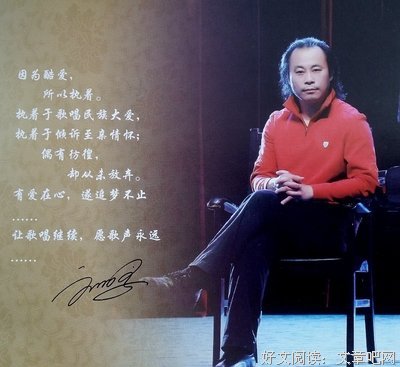 因为酷爱，
所以执着。
执着于歌唱民族大爱，
执着于倾诉至亲情怀；
偶有彷徨，
却从未放弃。
有爱在心，遂追梦不止
……
让歌唱继续，愿歌声永远
……
好文阅读：文章吧网